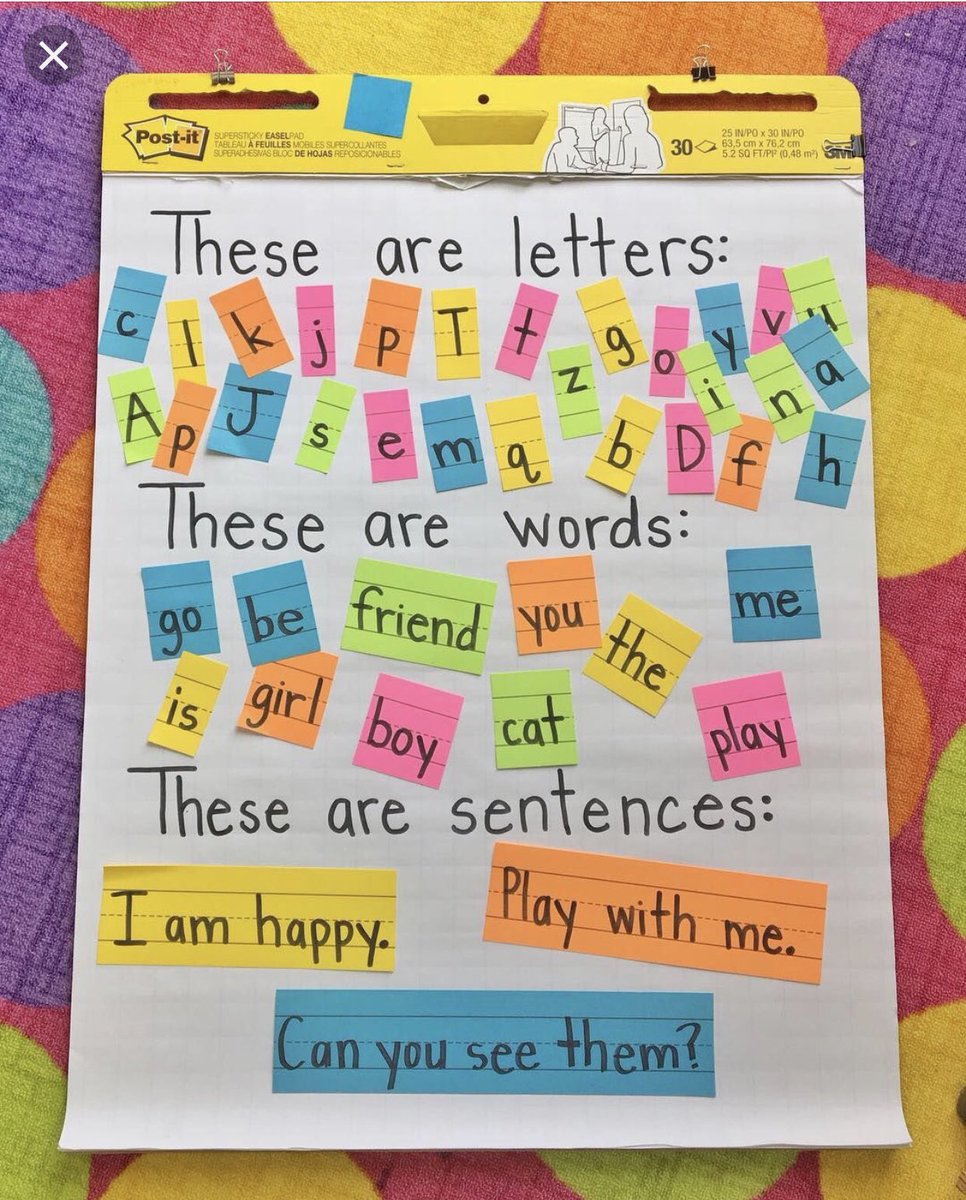 Post-it
SUPERSTICKY EASELPAD
TABLEAU À FEUILLES MOBILES SUPERCOLLANTES
SUPERADHESIVAS BLOC DE HOJAS REPOSICIONABLES
30
25 IN/PO x 30 IN/PO
63,5 cm x 76,2 cm
5.2 SQ FT/PI² (0,48 m²)
3M
These are letters:
c l k j p T t g o y v u
A p J s e m q z b D i f n a h
These are words:
go be friend you the me
is girl boy cat play
These are sentences:
I am happy.
Play with me.
Can you see them?